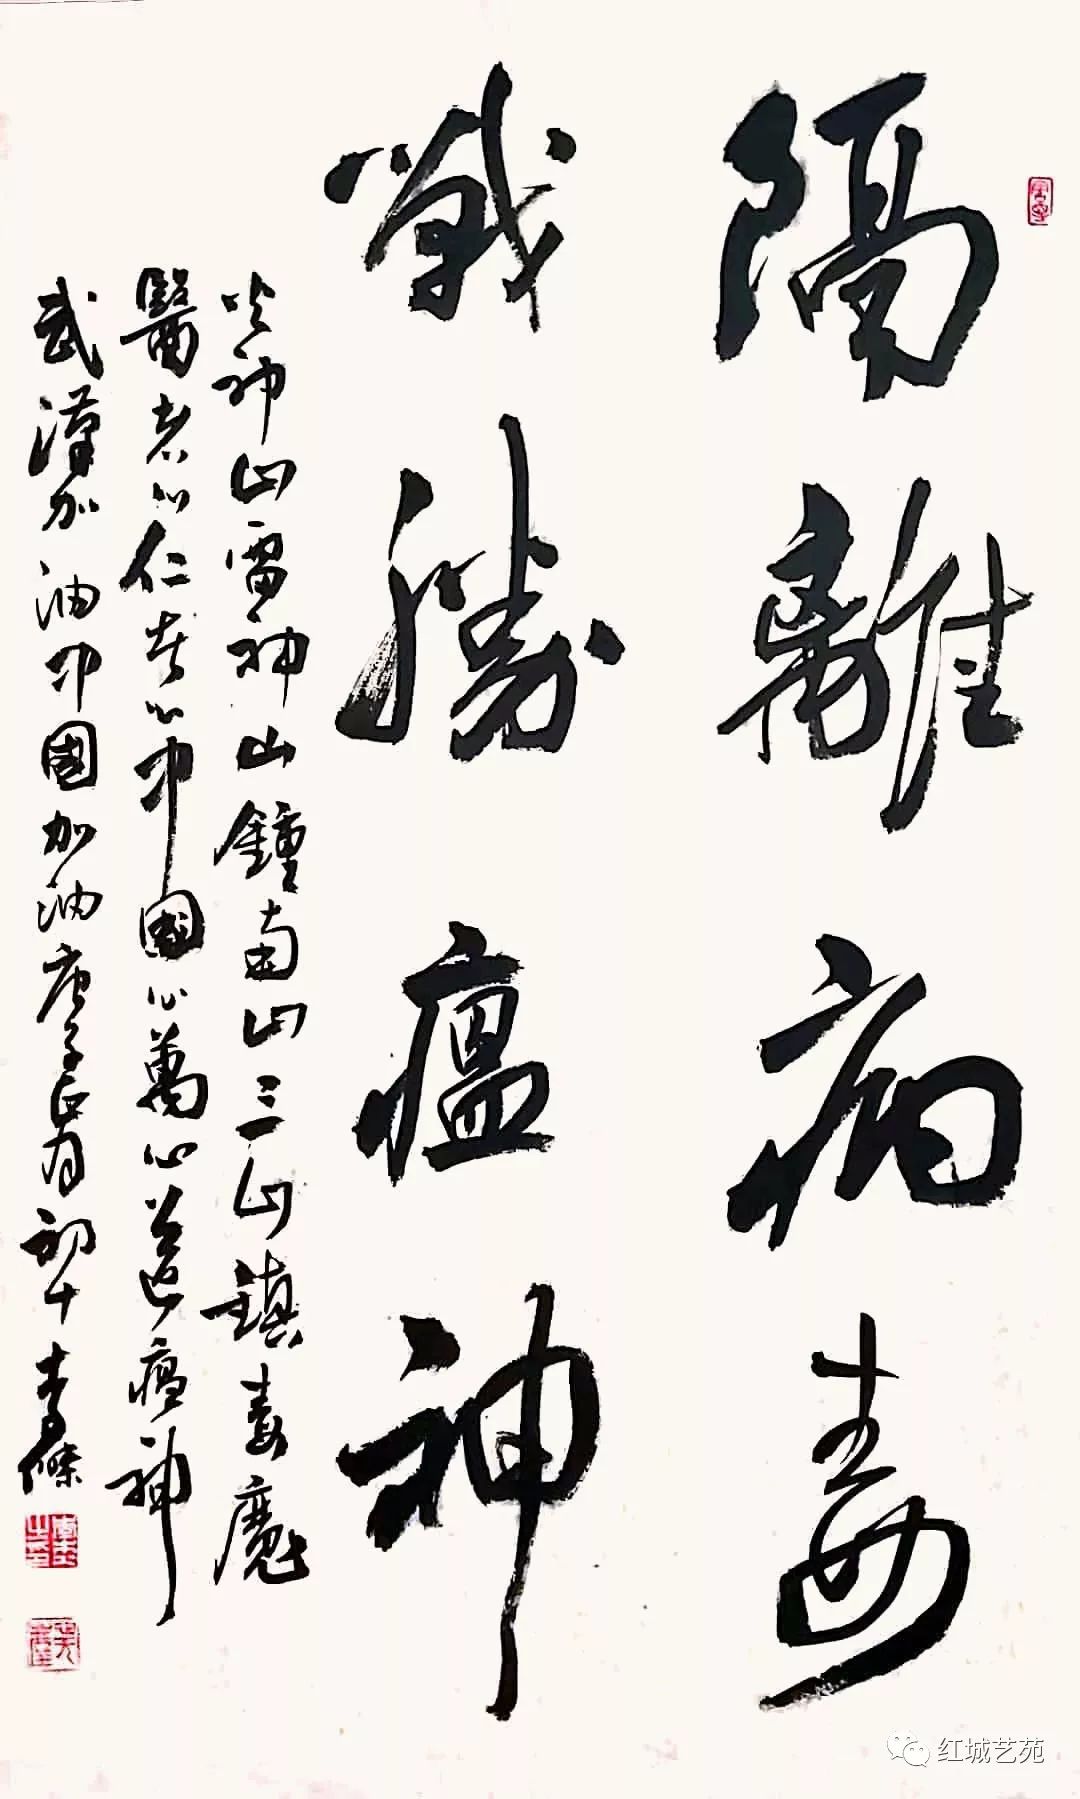 隔離病毒
戰勝瘟神
火神山雷神山鍾南山三山鎮毒魔
醫者心仁者心中國心萬心送瘟神
武漢加油中國加油庚子正月初十
红城艺苑